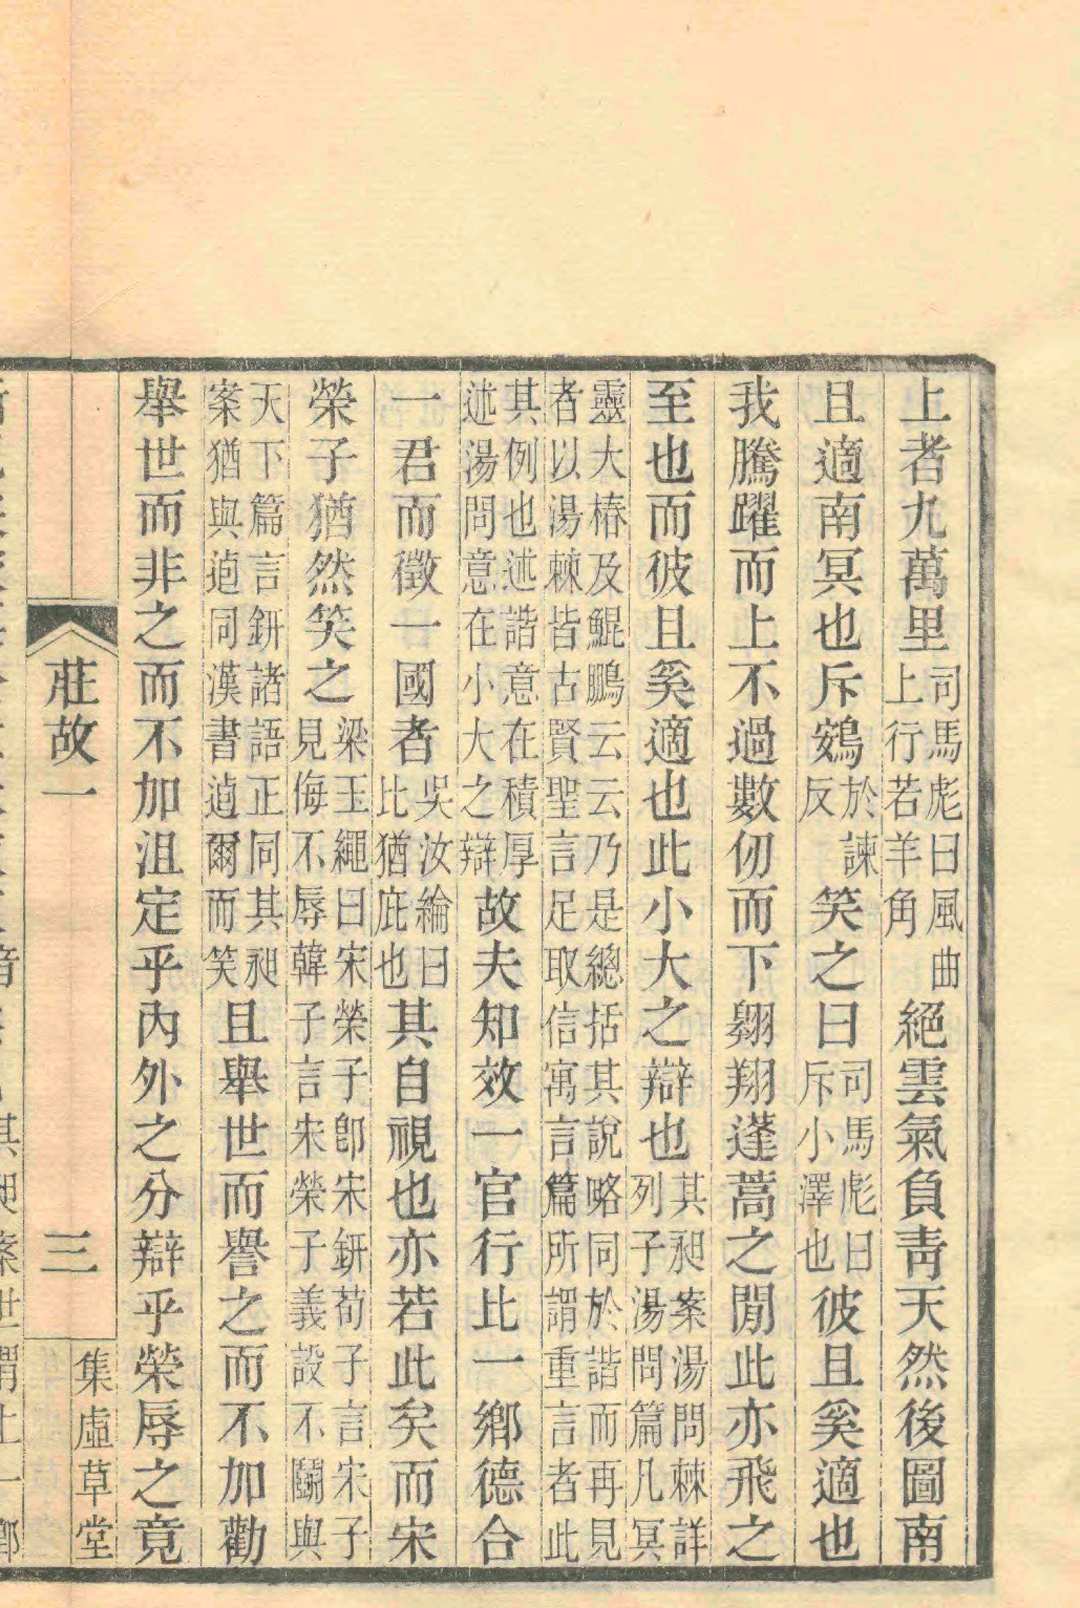 上者九萬里司馬彪曰風曲上行若羊角絕雲氣負青天然後圖南
且適南冥也斥鴳於諫反笑之曰司馬彪曰斥小澤也彼且奚適也
我騰躍而上不過數仞而下翱翔蓬蒿之閒此亦飛之
至也而彼且奚適也此小大之辯也其昶案湯問棘詳列子湯問篇凡冥
靈大椿及鯤鵬云云乃是總括其說略同於諧而再見者以湯棘皆古賢聖言足取信寓言篇所謂重言者此
其例也述諧意在積厚述湯問意在小大之辯故夫知效一官行比一鄉德合
一君而徵一國者吳汝綸曰比猶庇也其自視也亦若此矣而宋
榮子猶然笑之梁玉繩曰宋榮子卽宋鈃荀子言宋子見侮不辱韓子言宋榮子義設不鬭與
天下篇言鈃諸語正同其昶案猶與逌同漢書逌爾而笑且舉世而譽之而不加勸
舉世而非之而不加沮定乎內外之分辯乎榮辱之竟
莊故一 三 集虛草堂